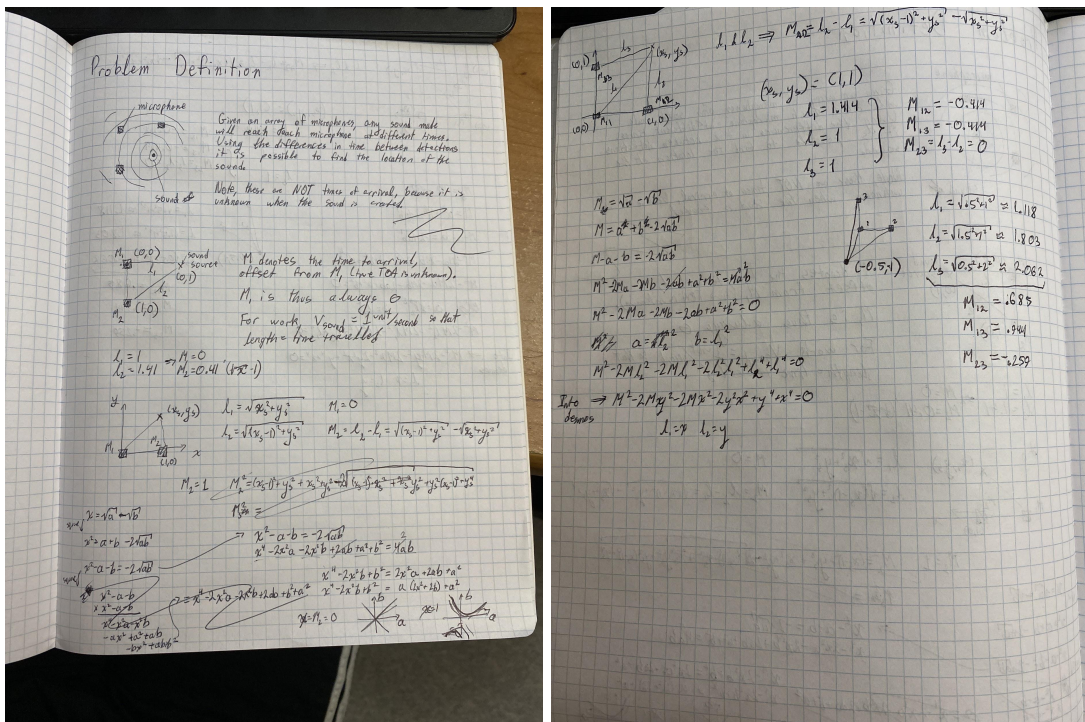 Problem Definition
microphone
Given an array of microphones, any sound made
will reach each microphone at different times.
Using the differences in time between detections
it is possible to find the location of the
sound.
sound
Note, these are NOT times of arrival, because it is
unknown when the sound is created.
M₁ (0,0)
sound
source
l₁
(0,1)
l₂
M₂ (1,0)
M denotes the time to arrival,
offset from M₁ (true TOA is unknown).
M₁ is thus always 0
For work, Vsound = 1 unit/second so that
length = time travelled
l₁ = 1 ⇒ M₁ = 0
l₂ = 1.41 M₂ = 0.41 (√2 - 1)
y
(xs, ys)
M₁
M₂
(1,0)
x
l₁ = √(xs² + ys²) M₁ = 0
l₂ = √((xs-1)² + ys²) M₂ = l₂ - l₁ = √((xs-1)² + ys²) - √(xs² + ys²)
M₂ = 1
x = √a - √b
x² = a + b - 2√ab
x² - a - b = -2√ab
⇒ x² - a - b = -2√ab
x⁴ - 2x²a - 2x²b + 2ab + a² + b² = 4ab
x² - a - b
× x² - a - b
x⁴ - x²a - x²b
-ax² + a² + ab
-bx² + ab + b²
= x⁴ - 2x²a - 2x²b + 2ab + b² + a²
x⁴ - 2x²b + b² = 2x²a + 2ab + a²
x⁴ - 2x²b + b² = a(2x² + 2b) + a²
x = M₂ = 0
b
a
x = 1
b
a
(0,1)
l₃
(xs, ys)
M₃
l₁
l₂
(0,0) M₁
M₂
(1,0)
l₁ & l₂ ⇒ M₂ = l₂ - l₁ = √((xs-1)² + ys²) - √(xs² + ys²)
(xs, ys) = (1,1)
l₁ = 1.414
l₂ = 1
l₃ = 1
M₁₂ = -0.414
M₁₃ = -0.414
M₂₃ = l₃ - l₂ = 0
M = √a - √b
M = a + b - 2√ab
M - a - b = -2√ab
M² - 2Ma - 2Mb - 2ab + a² + b² = 4ab
M² - 2Ma - 2Mb - 2ab + a² + b² = 0
a = l₂² b = l₁²
M² - 2Ml₂² - 2Ml₁² - 2l₂²l₁² + l₂⁴ + l₁⁴ = 0
Into
desmos
⇒ M² - 2My² - 2Mx² - 2y²x² + y⁴ + x⁴ = 0
l₁ = x l₂ = y
3
1
2
(-0.5, -1)
l₁ = √(.5² + 1²) ≈ 1.118
l₂ = √(1.5² + 1²) ≈ 1.803
l₃ = √(0.5² + 2²) ≈ 2.062
M₁₂ = .685
M₁₃ = .944
M₂₃ = -.259